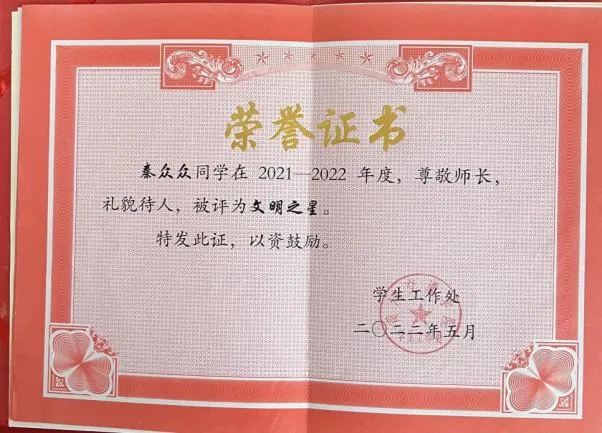 荣誉证书
秦众众同学在 2021—2022 年度，尊敬师长，
礼貌待人，被评为文明之星。
特发此证，以资鼓励。
学生工作处
二〇二二年五月